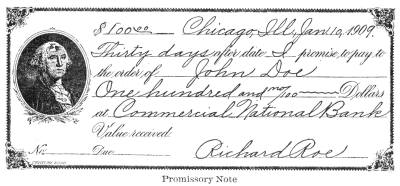 $100.00 Chicago, Ill., Jan. 10, 1909.
Thirty days after date I promise to pay to
the order of John Doe
One hundred and no/100 Dollars
at Commercial National Bank
Value received.
No. Due Richard Roe
Promissory Note